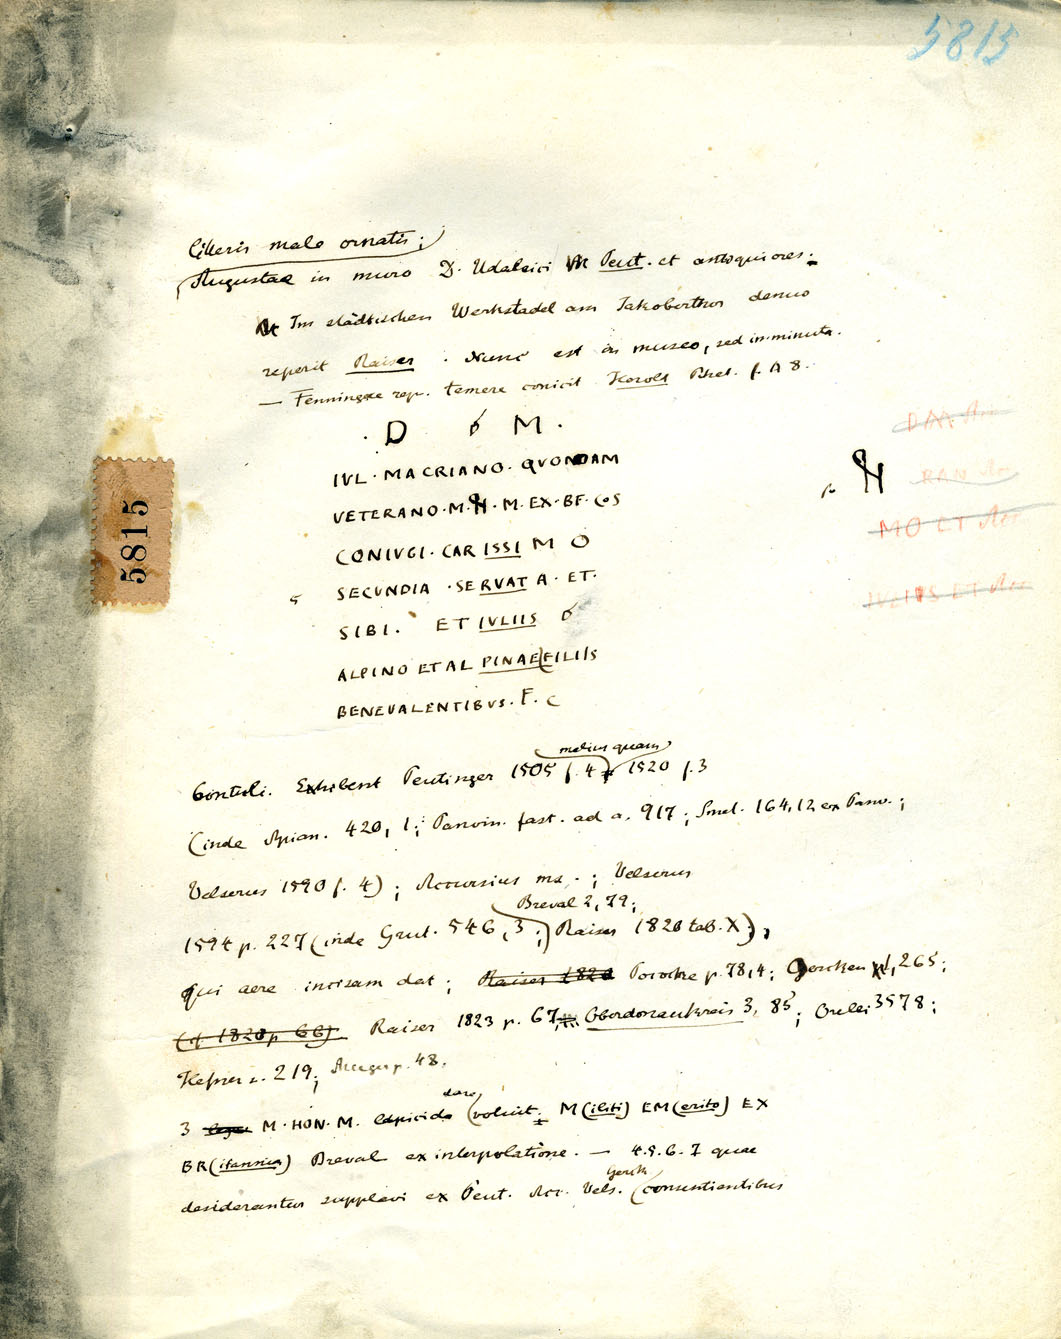 5815
litteris male ornatis;
Augustae in muro D. Udalrici Peut. et antiquiores.
Im städtischen Werkstadel am Jakoberthor denuo
reperit Raiser. Nunc est in museo, sed imminuta.
— rep. temere conicit Herold f. A 8.
. D M .
IVL · MACRIANO · QVONDAM
VETERANO · M · H · M · EX · BF · COS
CONIVGI · CARISSIMO
5 SECUNDIA · SERVATA · ET ·
SIBI · ET IVLIIS
ALPINO ET AL PINAE FILIIS
BENEVALENTIBVS · F · C
5815
H
MO ET
IVLIVS ET
melius quam
Contuli. Exhibent Peutinger 1505 f. 4 1520 f. 3
(inde Apian. 420, 1; Panvin. fast. ad a. 917; Smet. 164, 12 ex Panv.;
Velserus 1590 f. 4); Accursius ms.; Velserus
Breval 2, 79;
1594 p. 227 (inde Grut. 546, 3; Raiser 1820 tab. X),
qui aere incisam dat; Raiser 1820 Pococke p. 78, 4; Gercken 1, 265;
(cf. 1820 p. 66) Raiser 1823 p. 67; Oberdonaukreis 3, 85; Orelli 3578;
Hefner 219; p. 48.
dare
3 M · HON · M. lapicida voluit; M(iliti) EM(erito) EX
BR(itannia) Breval ex interpolatione. — 4. 5. 6. 7 quae
Gerck
desiderantur supplevi ex Peut. Acc. Vels. consentientibus